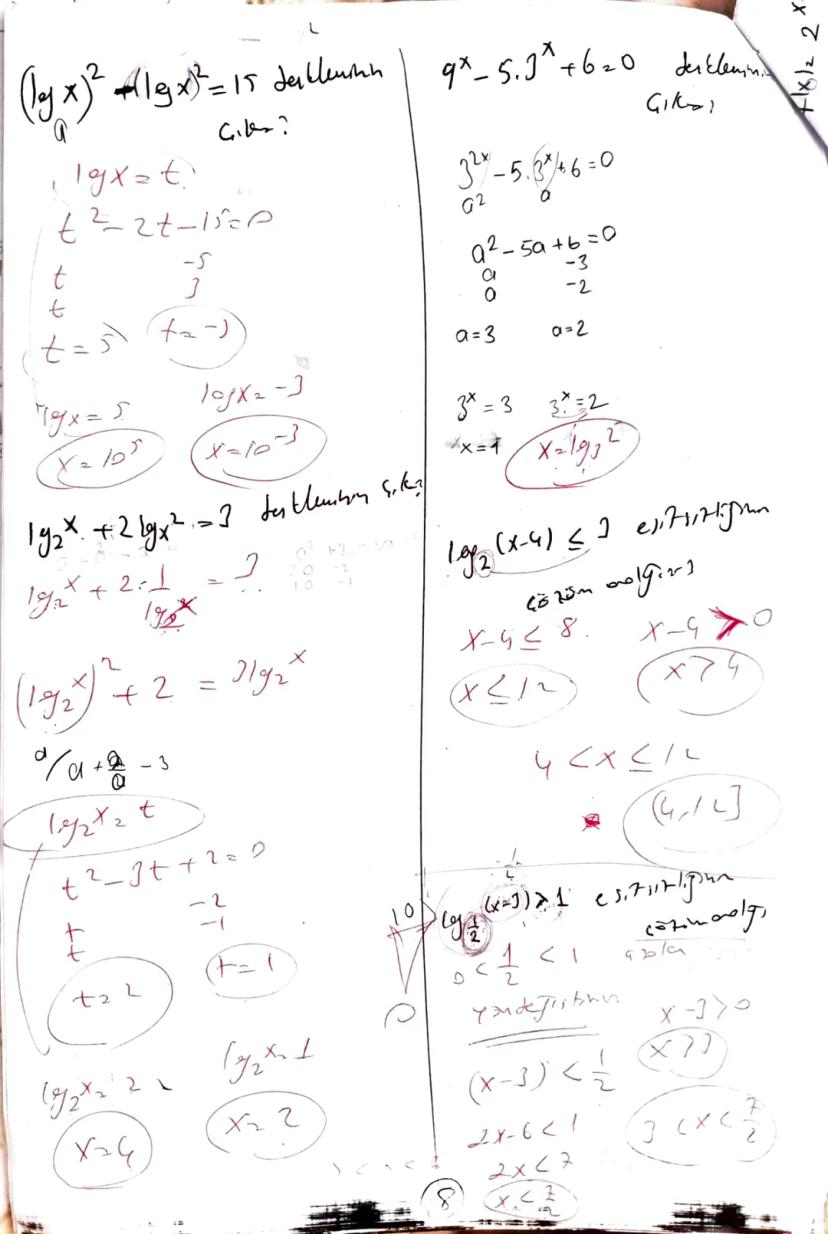 (log x)² - (lg x)² = 15 denkleminin
a
Ç.K?
lgx = t
t² - 2t - 15 = 0
t -5
t 3
t = 5 t = -3
lgx = 5 logx = -3
x = 10⁵ x = 10⁻³
lg₂x + 2lgₓ2 = 3 denkleminin Ç.K?
lg₂x + 2·1/lg₂x = 3
(lg₂x)² + 2 = 3lg₂x
a/ a + 2/a - 3
lg₂x = t
t² - 3t + 2 = 0
t -2
t -1
t = 2 t = 1
lg₂x = 2 lg₂x = 1
x = 4 x = 2
9ˣ - 5.3ˣ + 6 = 0 denklemin
Ç.K?
3²ˣ - 5.3ˣ + 6 = 0
a² a
a² - 5a + 6 = 0
a -3
a -2
a = 3 a = 2
3ˣ = 3 3ˣ = 2
x = 1 x = lg₃2
log₂(x-4) ≤ 3 eşitsizliğinin
çözüm aralığı?
x-4 ≤ 8 x-4 > 0
x ≤ 12 x > 4
4 < x ≤ 12
(4,12]
log½(x-3) > 1 eşitsizliğinin
çözüm aralığı
0 < 1/2 < 1
yön değiştirir x-3 > 0
x > 3
(x-3) < 1/2
2x-6 < 1 3 < x < 7/2
2x < 7
x < 7/2
10
8